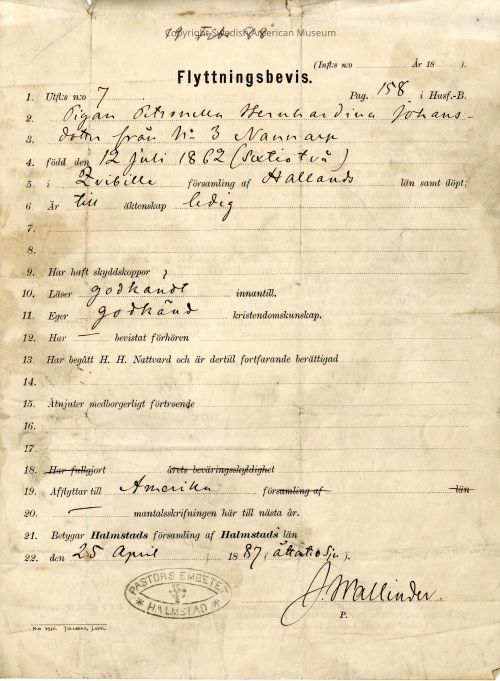 Copyright Swedish American Museum
(Inft:s n:o År 18 ).
Flyttningsbevis.
1. Utft:s n:o 7 Pag. 158 i Husf.-B.
2. Pigan Petronella Bernhardina Johans-
3. dotter från No 3 Nannarp
4. född den 12 juli 1862 (sextiotvå)
5. i Qvibille församling af Hallands län samt döpt;
6. Är till äktenskap ledig
7.
8.
9. Har haft skyddskoppor
10. Läser godkändt innantill.
11. Eger godkänd kristendomskunskap.
12. Har — bevistat förhören
13. Har begått H. H. Nattvard och är dertill fortfarande berättigad
14.
15. Åtnjuter medborgerligt förtroende
16.
17.
18. Har fullgjort årets beväringsskyldighet
19. Afflyttar till Amerika församling af län
20. — mantalsskrifningen här till nästa år.
21. Betygar Halmstads församling af Halmstads län
22. den 25 April 1887, (åttatiosju).
PASTORS EMBETET
HALMSTAD
J. Wallinder.
P.